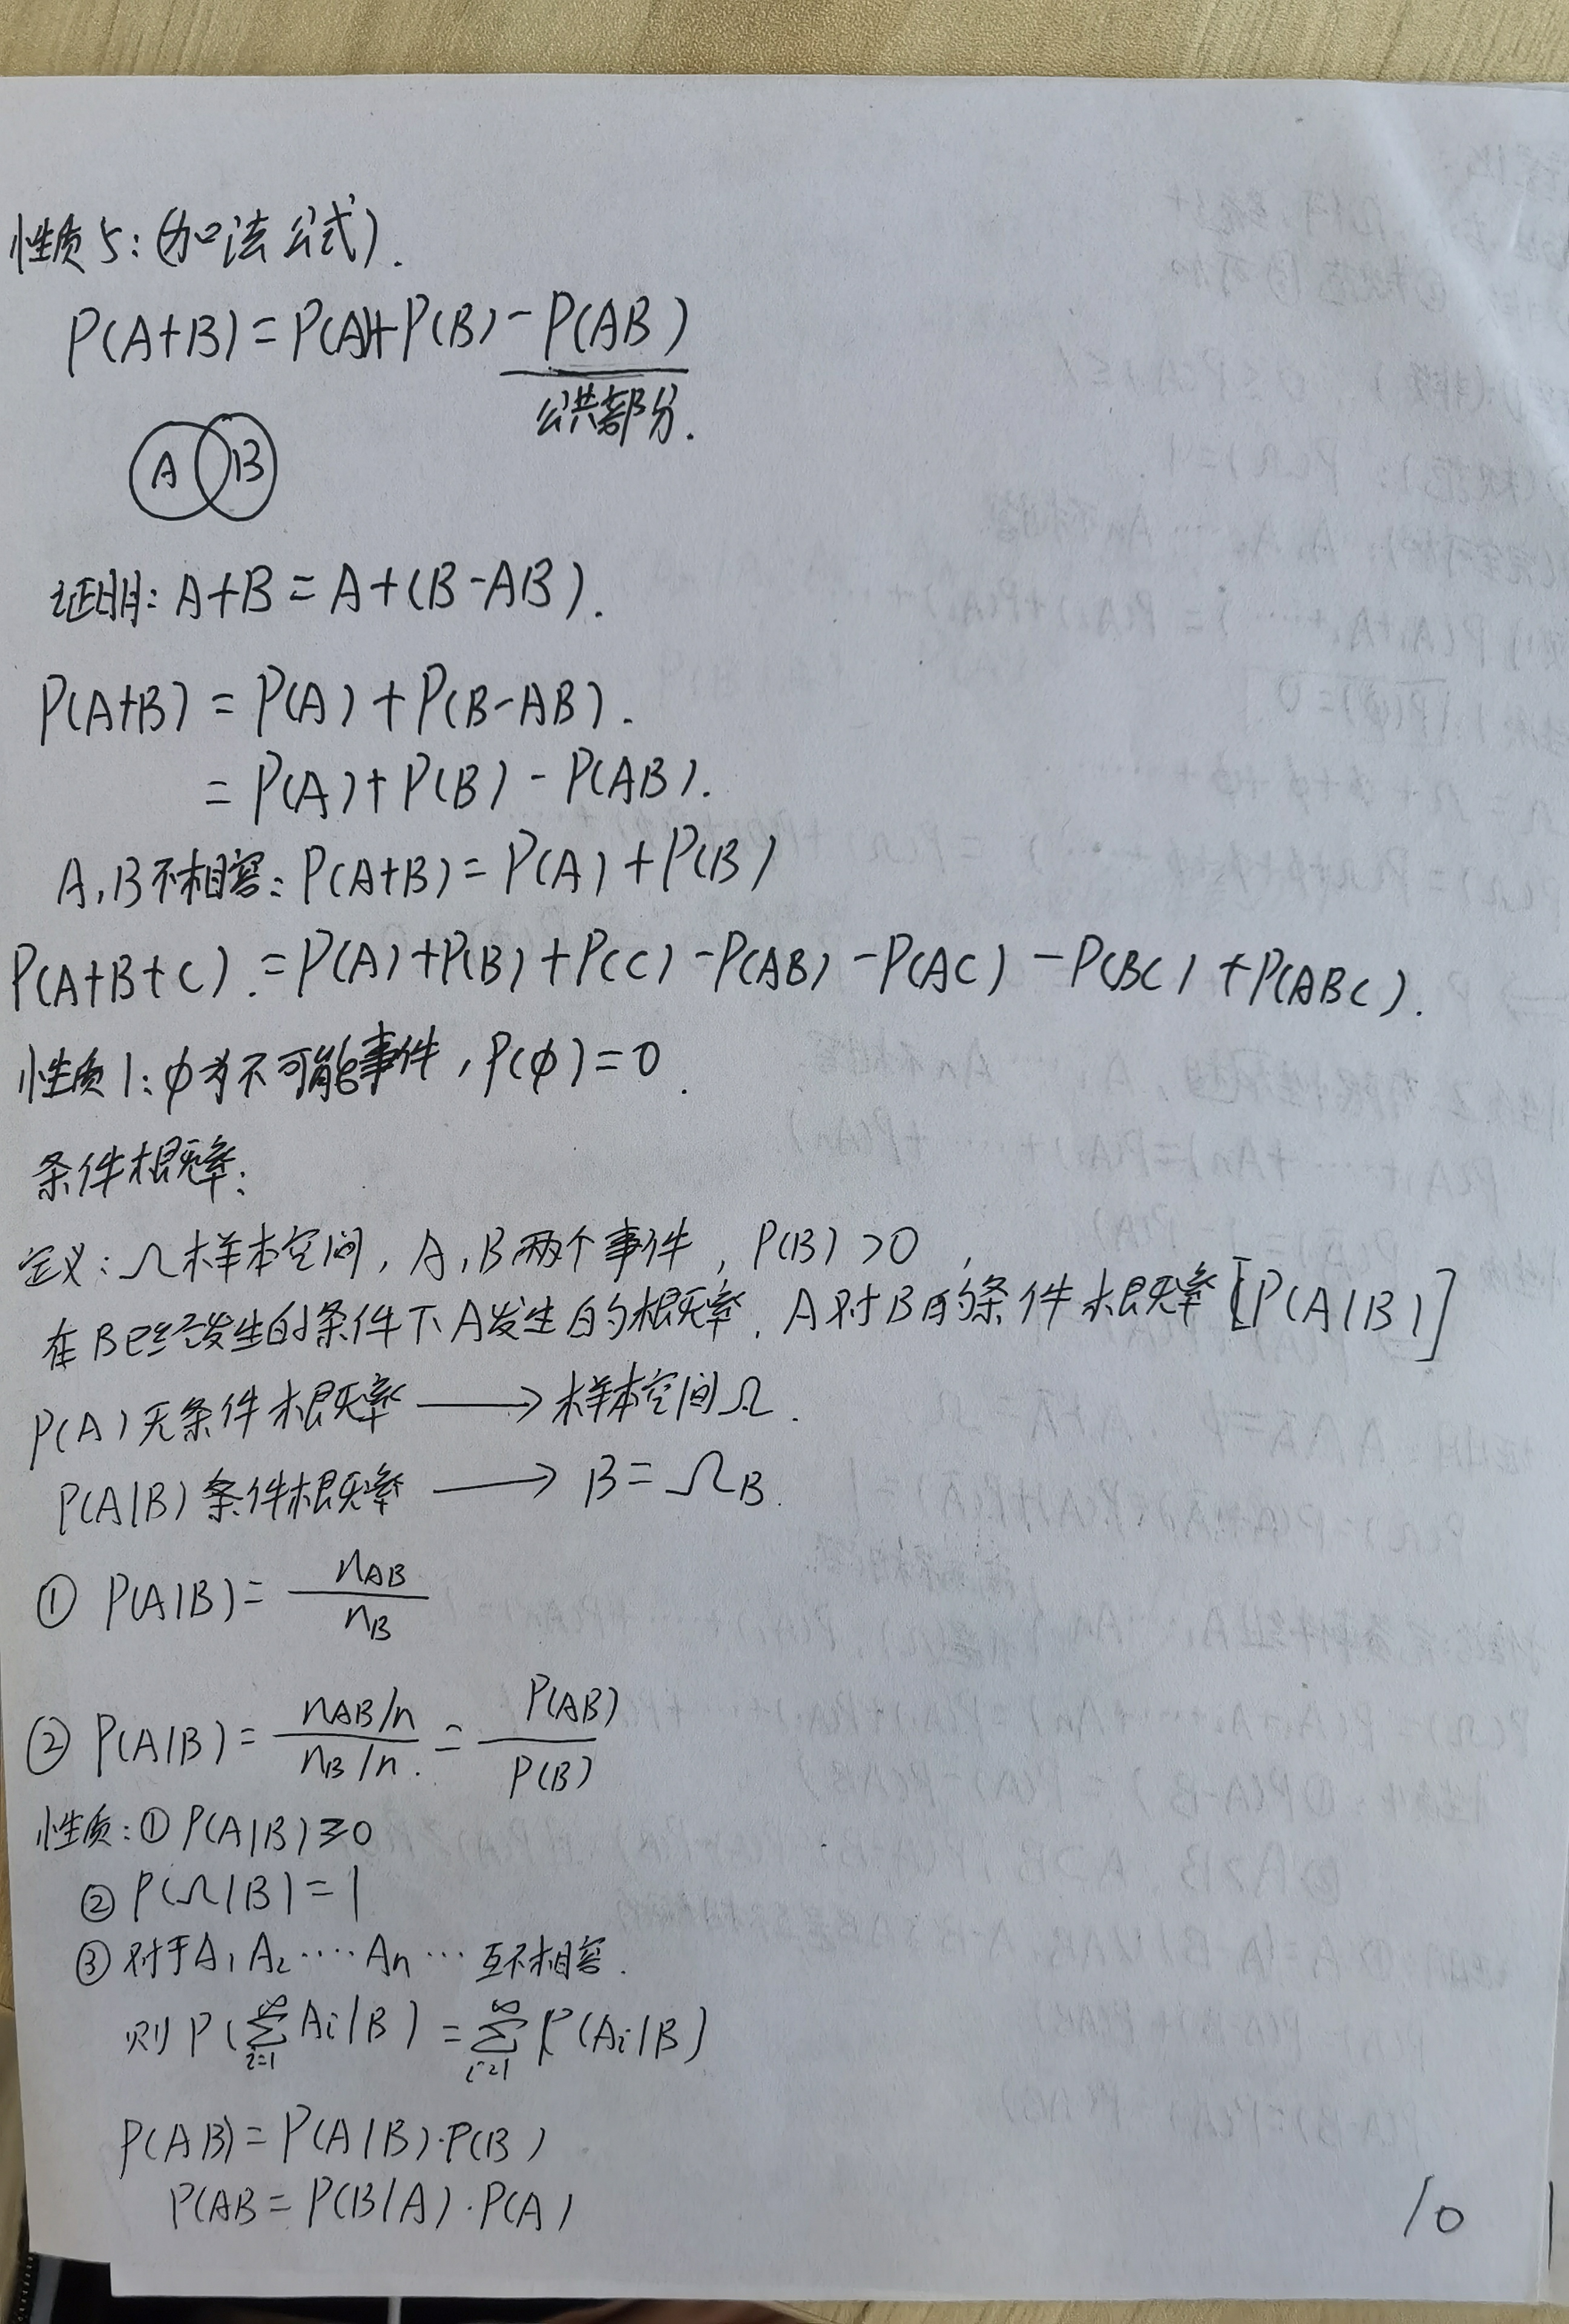 性质5:(加法公式).
P(A+B)=P(A)+P(B)-P(AB)
公共部分.
A B
证明: A+B=A+(B-AB).
P(A+B)=P(A)+P(B-AB).
=P(A)+P(B)-P(AB).
A,B不相容: P(A+B)=P(A)+P(B)
P(A+B+C).=P(A)+P(B)+P(C)-P(AB)-P(AC)-P(BC)+P(ABC).
性质1: φ为不可能事件, P(φ)=0.
条件概率:
定义: Ω样本空间, A,B两个事件, P(B)>0,
在B已经发生的条件下A发生的概率. A对B的条件概率[P(A|B)]
P(A)无条件概率 ⟶ 样本空间Ω.
P(A|B)条件概率 ⟶ B=Ω_B.
① P(A|B)= n_AB / n_B
② P(A|B)= (n_AB/n) / (n_B/n) = P(AB) / P(B)
性质: ① P(A|B)≥0
② P(Ω|B)=1
③ 对于A₁ A₂ ···· An ··· 互不相容.
则P(∑_{i=1}^∞ Ai|B)=∑_{i=1}^∞ P(Ai|B)
P(AB)=P(A|B)·P(B)
P(AB=P(B|A)·P(A)
10